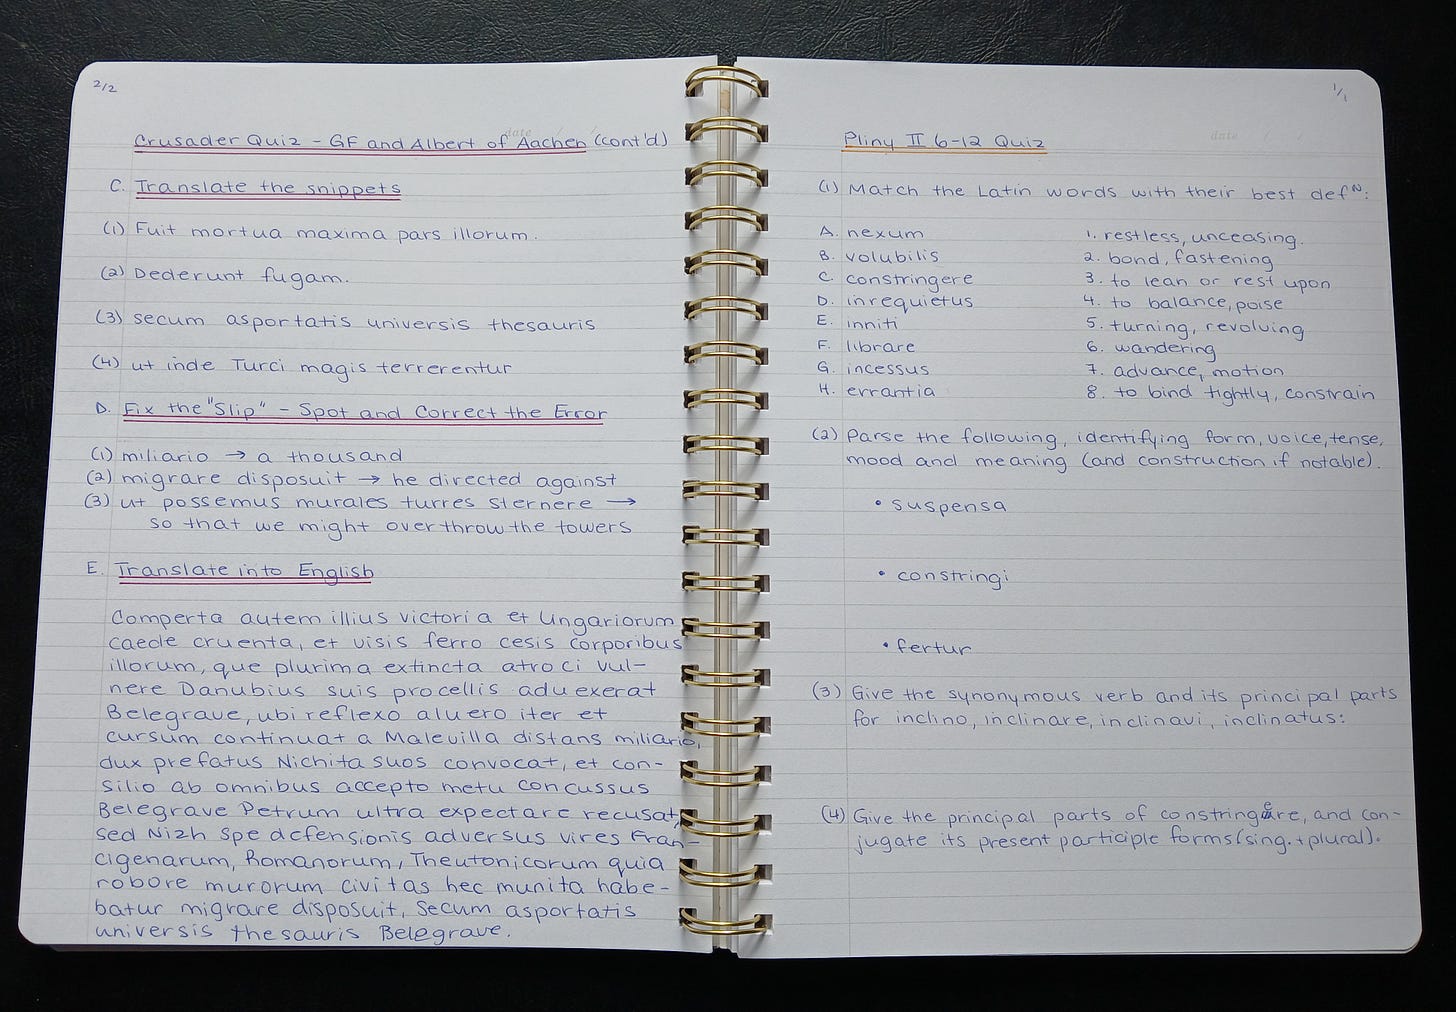 2/2
date / /
Crusader Quiz - GF and Albert of Aachen (cont'd)
C. Translate the snippets
(1) Fuit mortua maxima pars illorum.
(2) Dederunt fugam.
(3) secum asportatis universis thesauris
(4) ut inde Turci magis terrerentur
D. Fix the "Slip" - Spot and Correct the Error
(1) miliario → a thousand
(2) migrare disposuit → he directed against
(3) ut possemus murales turres sternere →
so that we might overthrow the towers
E. Translate into English
Comperta autem illius victoria et Ungariorum
caede cruenta, et visis ferro cesis corporibus
illorum, que plurima extincta atroci vul-
nere Danubius suis procellis aduexerat
Belegrave, ubi reflexo alueo iter et
cursum continuat a Malevilla distans miliario,
dux prefatus Nichita suos convocat, et con-
silio ab omnibus accepto metu concussus
Belegrave Petrum ultra expectare recusat,
sed Nizh spe defensionis adversus vires Fran-
cigenarum, Romanorum, Theutonicorum quia
robore murorum civitas hec munita habe-
batur migrare disposuit, secum asportatis
universis thesauris Belegrave.
1/1
date / /
Pliny II 6-12 Quiz
(1) Match the Latin words with their best defN:
A. nexum 1. restless, unceasing.
B. volubilis 2. bond, fastening
C. constringere 3. to lean or rest upon
D. inrequietus 4. to balance, poise
E. inniti 5. turning, revolving
F. librare 6. wandering
G. incessus 7. advance, motion
H. errantia 8. to bind tightly, constrain
(2) Parse the following, identifying form, voice, tense,
mood and meaning (and construction if notable).
• suspensa
• constringi
• fertur
(3) Give the synonymous verb and its principal parts
for inclino, inclinare, inclinavi, inclinatus:
(4) Give the principal parts of constringere, and con-
jugate its present participle forms (sing. + plural).